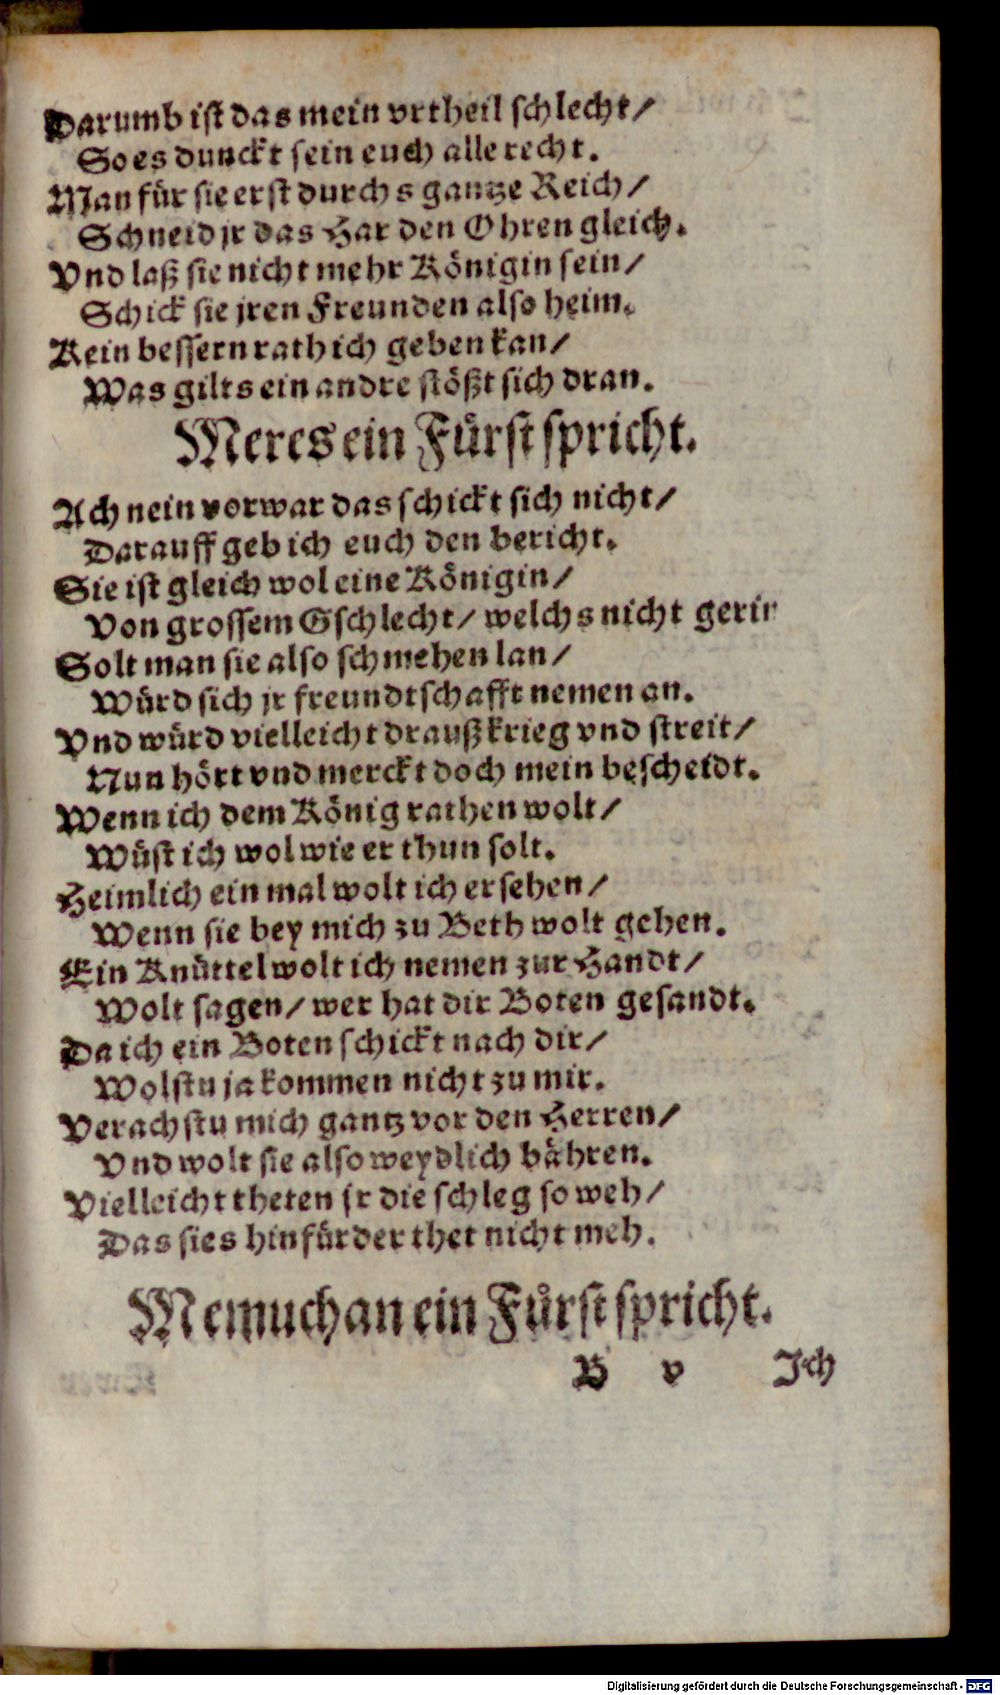 Darumb ist das mein vrtheil schlecht/
So es dunckt sein euch alle recht.
Man für sie erst durchs gantze Reich/
Schneid jr das Har den Ohren gleich.
Vnd laß sie nicht mehr Königin sein/
Schick sie jren Freunden also heim.
Kein bessern rath ich geben kan/
Was gilts ein andre stößt sich dran.
Meres ein Fürst spricht.
Ach nein vorwar das schickt sich nicht/
Darauff geb ich euch den bericht.
Sie ist gleich wol eine Königin/
Von grossem Gschlecht/ welchs nicht gerin
Solt man sie also schmehen lan/
Würd sich jr freundtschafft nemen an.
Vnd würd vielleicht drauß krieg vnd streit/
Nun hört vnd merckt doch mein bescheidt.
Wenn ich dem König rathen wolt/
Wüst ich wol wie er thun solt.
Heimlich ein mal wolt ich ersehen/
Wenn sie bey mich zu Beth wolt gehen.
Ein Knüttel wolt ich nemen zur Handt/
Wolt sagen/ wer hat dir Boten gesandt.
Da ich ein Boten schickt nach dir/
Wolstu ja kommen nicht zu mir.
Verachstu mich gantz vor den Herren/
Vnd wolt sie also weydlich bähren.
Vielleicht theten jr die schleg so weh/
Das sies hinfürder thet nicht meh.
Memuchan ein Fürst spricht.
B v Ich
Digitalisierung gefördert durch die Deutsche Forschungsgemeinschaft - DFG